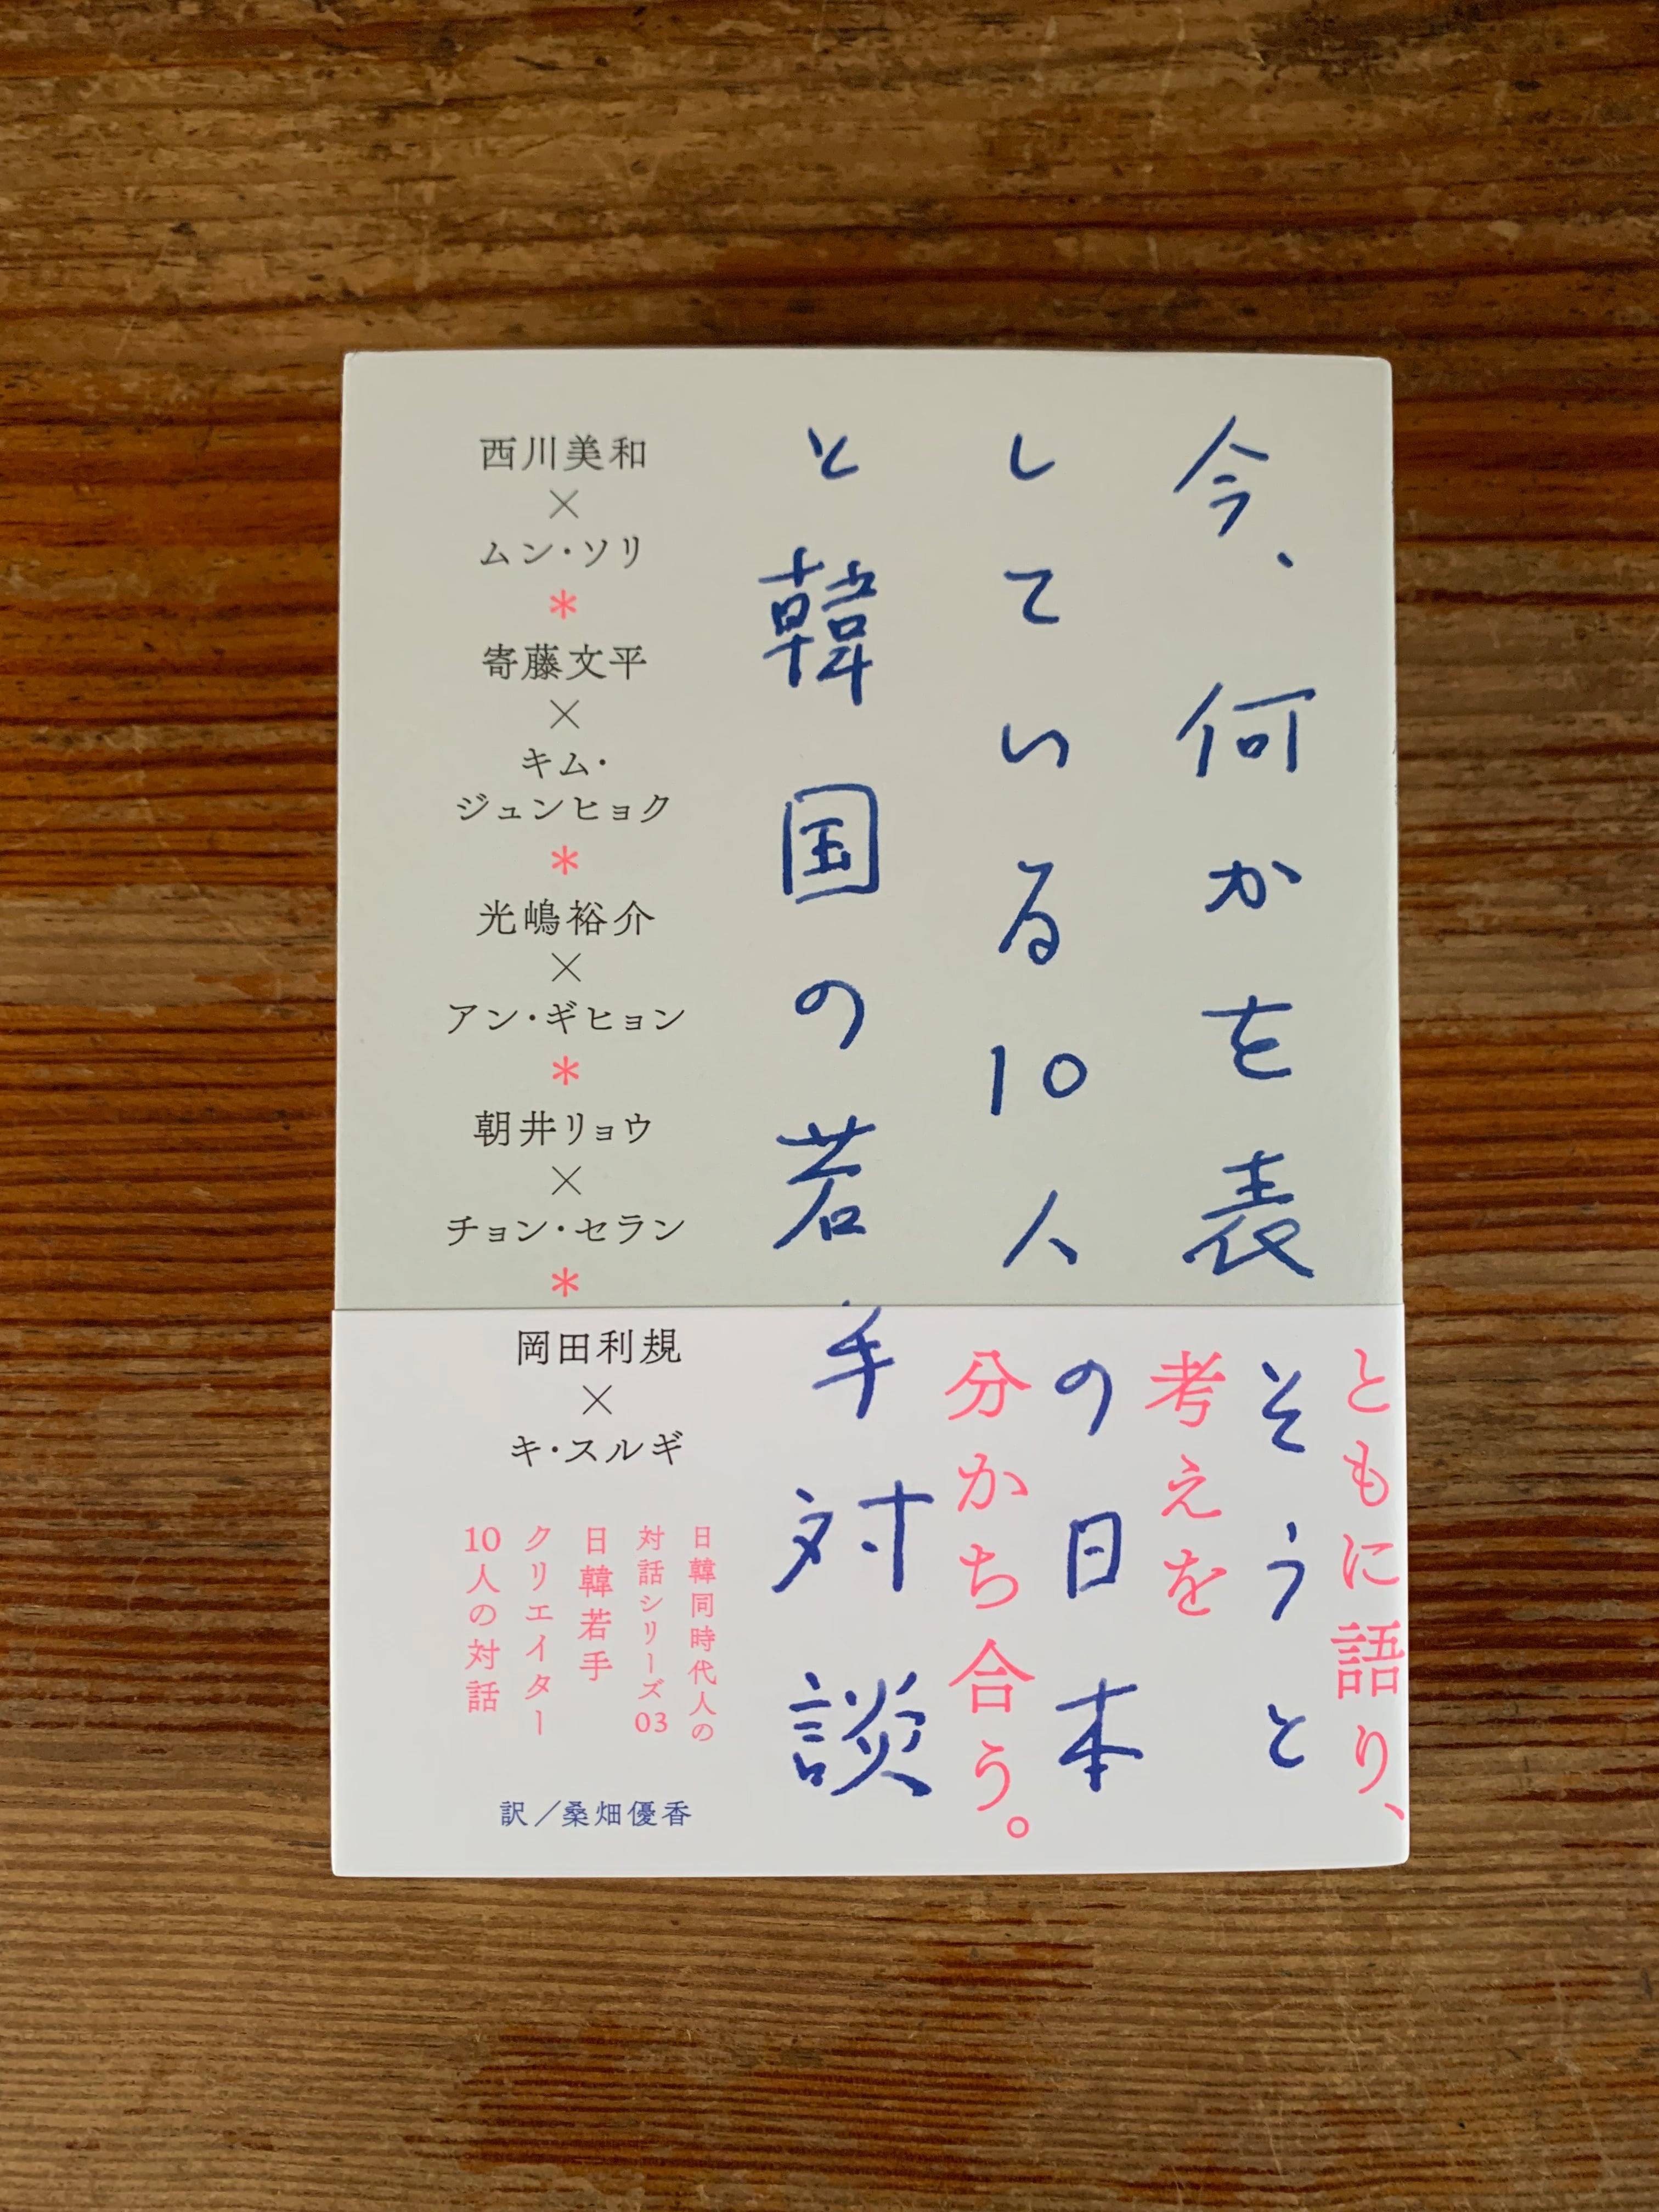 今、何かを表そうと
している10人の日本
と韓国の若手対談
西川美和
×
ムン・ソリ
*
寄藤文平
×
キム・
ジュンヒョク
*
光嶋裕介
×
アン・ギヒョン
*
朝井リョウ
×
チョン・セラン
*
岡田利規
×
キ・スルギ
ともに語り、
考えを
分かち合う。
日韓同時代人の
対話シリーズ03
日韓若手
クリエイター
10人の対話
訳／桑畑優香